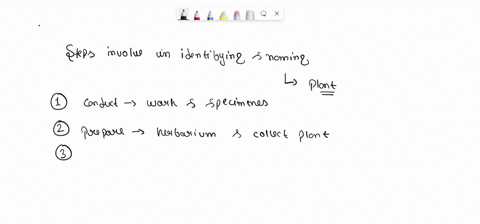 Steps involve in identibying & noming
↳ plant
① conduct → work & specimenes
② prepare → herbarium & collect plant
③